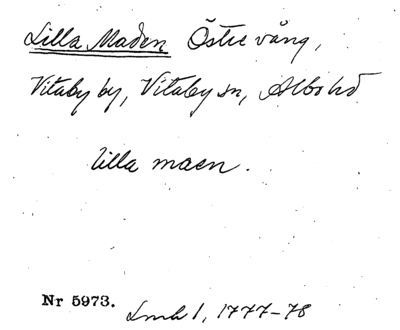 Lilla Maden Östre vång,
Vitaby by, Vitaby sn, Albo hd
lilla maen.
Nr 5973. Lmh 1, 1777-78